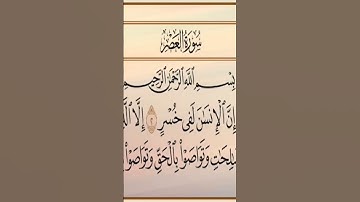 سُورَةُ الْعَصْرِ
بِسْمِ اللَّهِ الرَّحْمَٰنِ الرَّحِيمِ
إِنَّ الْإِنسَانَ لَفِي خُسْرٍ ٢ إِلَّا
وَتَوَاصَوْا بِالْحَقِّ وَتَوَاصَوْا